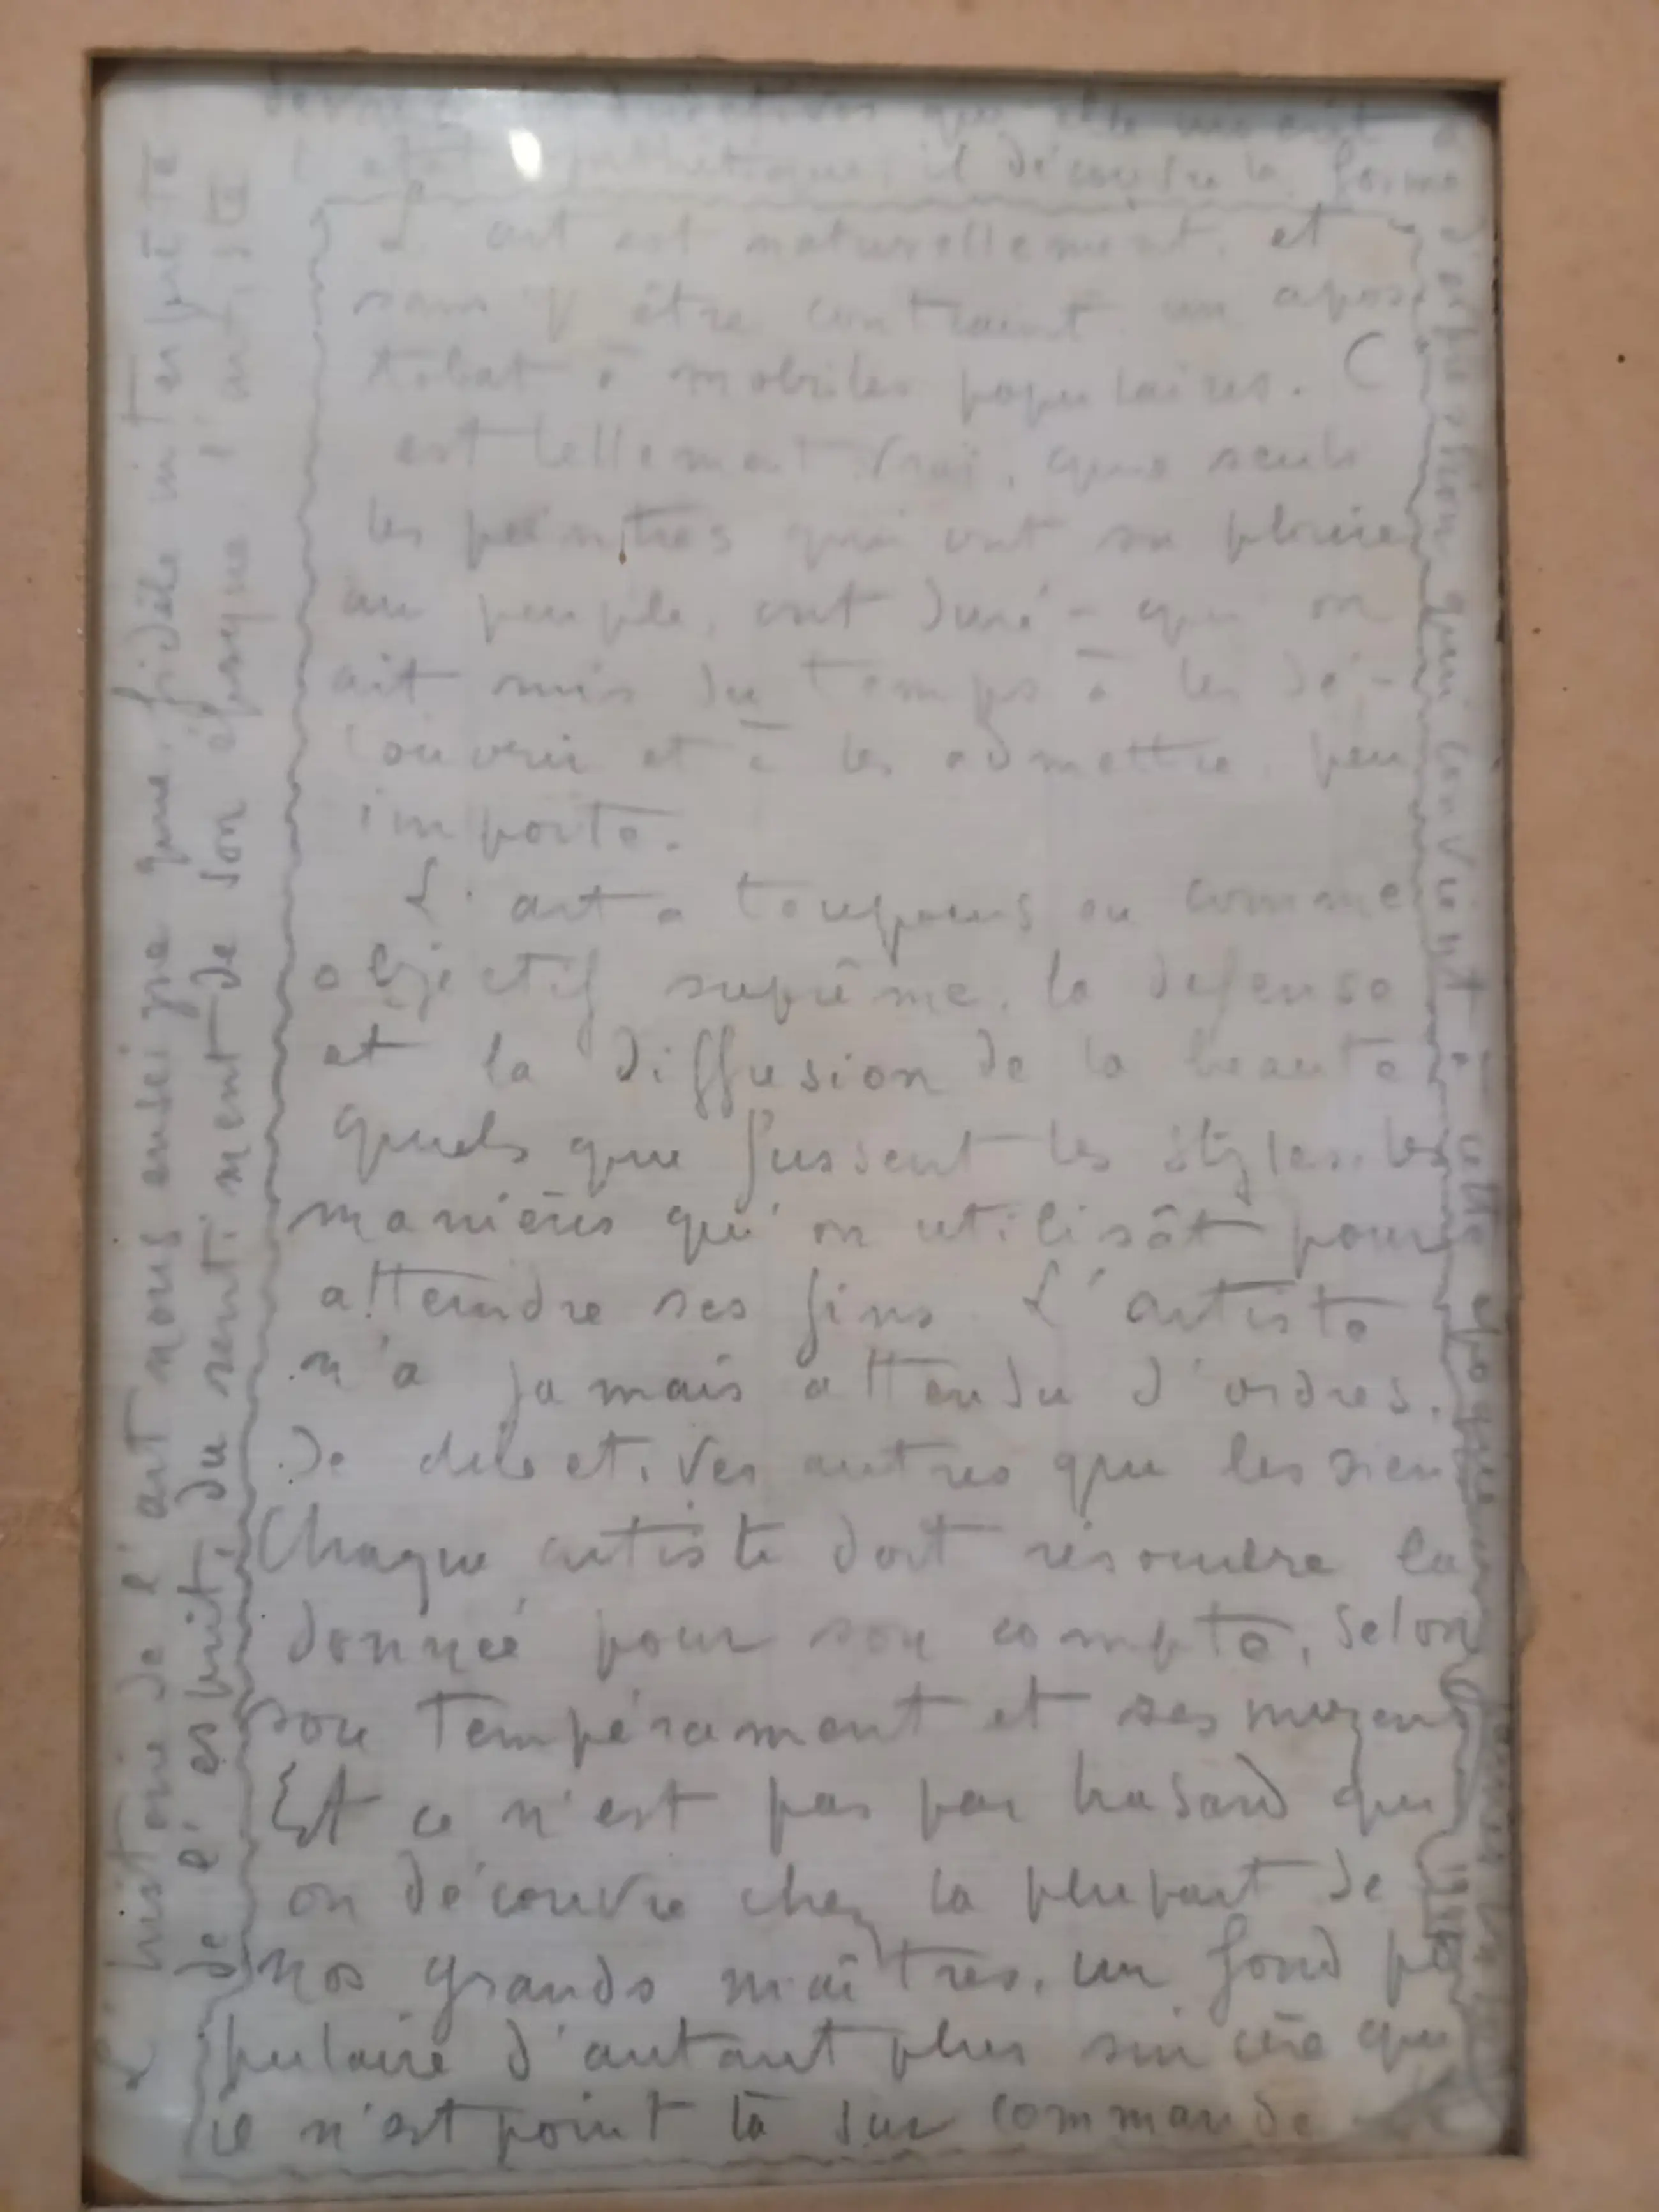 L'histoire de l'art nous enseigne que, fidèle interprète
de l'esprit, du sentiment de son époque l'artiste
il découvre la forme
d'expression qui convient à cette époque
L'art est naturellement, et
sans y être contraint un apos
tolat à mobiles populaires. C
est tellement vrai, que seuls
les peintres qui ont su plaire
au peuple, ont duré - qu'on
ait mis du temps à les dé-
couvrir et à les admettre, peu
importe.
L'art a toujours eu comme
objectif suprême, la defense
et la diffusion de la beauté
quels que fussent les styles, les
manières qu'on utilisât pour
atteindre ses fins. L'artiste
n'a jamais attendu d'ordres,
de directives autres que les sien
Chaque artiste doit résoudre la
donnée pour son compte, selon
son tempérament et ses moyens
Et ce n'est pas par hasard qu
on découvre chez la plupart de
nos grands maîtres, un fond po
pulaire d'autant plus sincère que
ce n'est point là sur commande